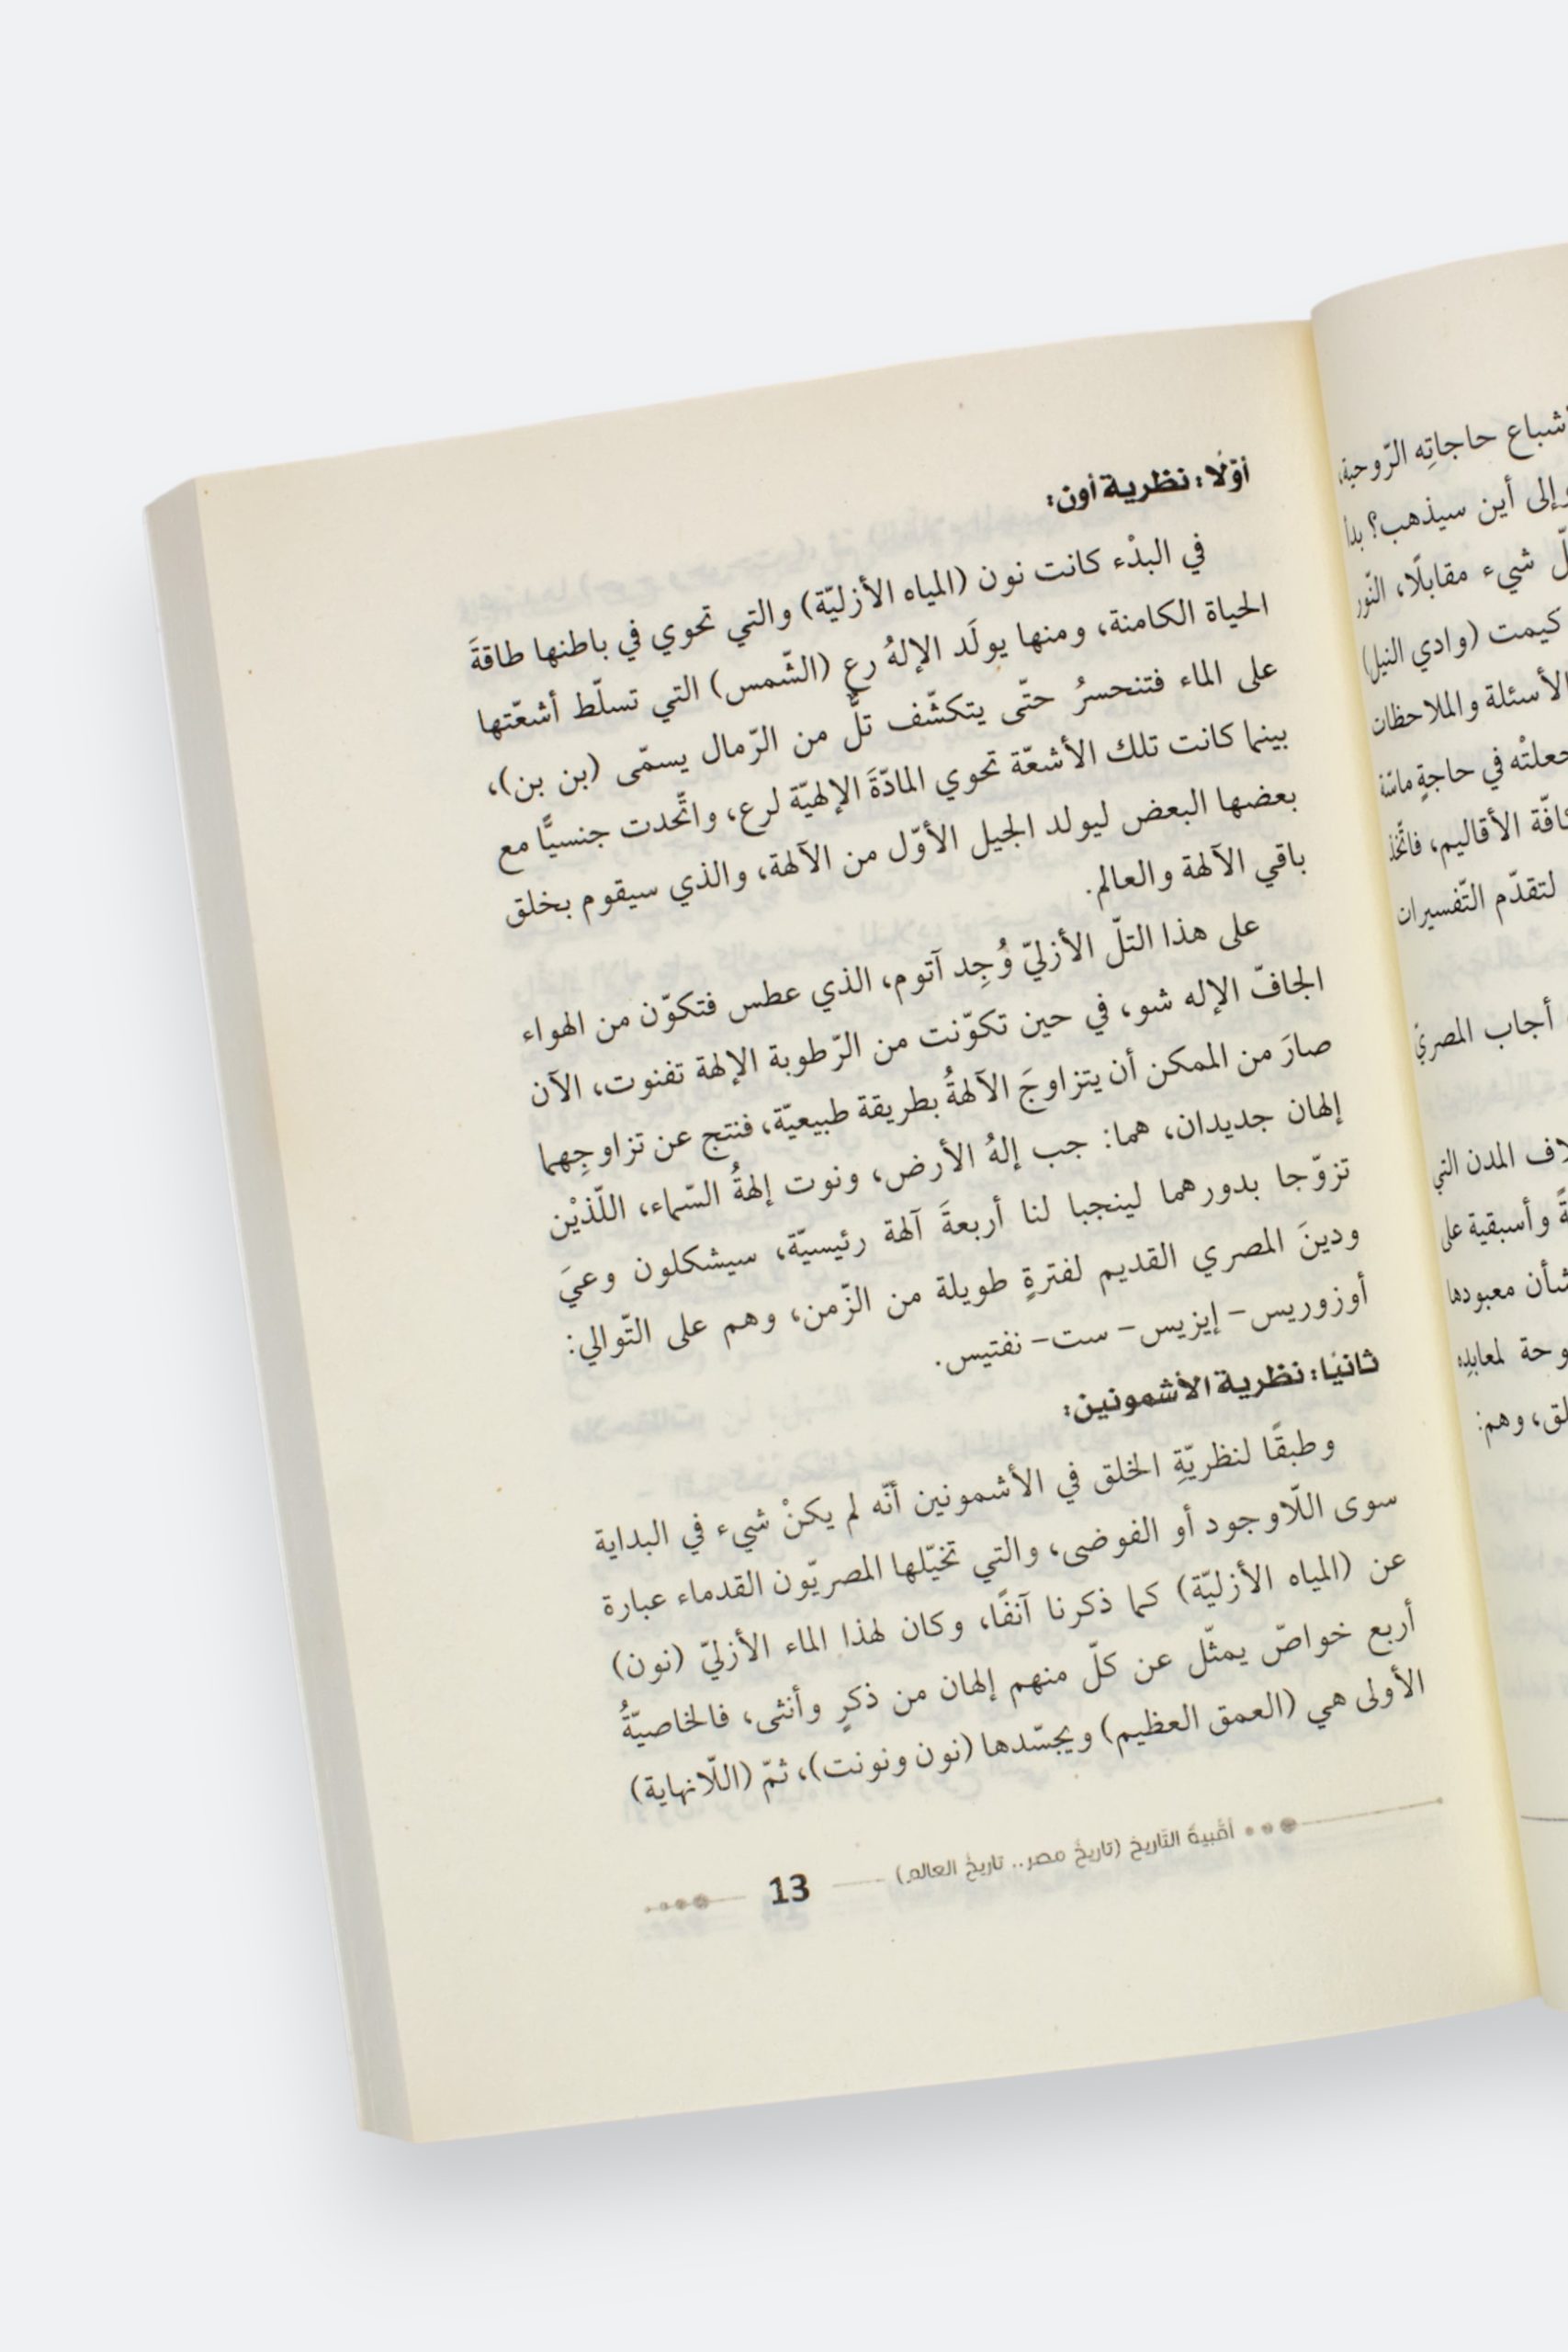 أوّلًا: نظرية أون:
في البدْء كانت نون (المياه الأزليّة) والتي تحوي في باطنها طاقةَ
الحياة الكامنة، ومنها يولَد الإلهُ رع (الشّمس) التي تسلّط أشعّتها
على الماء فتنحسرُ حتّى يتكشّف تلٌّ من الرّمال يسمّى (بن بن)،
بينما كانت تلك الأشعّة تحوي المادّةَ الإلهيّة لرع، واتّحدت جنسيًّا مع
بعضها البعض ليولد الجيل الأوّل من الآلهة، والذي سيقوم بخلق
باقي الآلهة والعالم.
على هذا التلّ الأزليّ وُجِد آتوم، الذي عطس فتكوّن من الهواء
الجافّ الإله شو، في حين تكوّنت من الرّطوبة الإلهة تفنوت، الآن
صارَ من الممكن أن يتزاوجَ الآلهةُ بطريقة طبيعيّة، فنتج عن تزاوجِهما
إلهان جديدان، هما: جب إلهُ الأرض، ونوت إلهةُ السّماء، اللّذيْن
تزوّجا بدورهما لينجبا لنا أربعةَ آلهة رئيسيّة، سيشكلون وعيَ
ودينَ المصري القديم لفترةٍ طويلة من الزّمن، وهم على التّوالي:
أوزوريس- إيزيس- ست- نفتيس.
ثانيًا: نظرية الأشمونين:
وطبقًا لنظريّةِ الخلق في الأشمونين أنّه لم يكنْ شيء في البداية
سوى اللّاوجود أو الفوضى، والتي تخيّلها المصريّون القدماء عبارة
عن (المياه الأزليّة) كما ذكرنا آنفًا، وكان لهذا الماء الأزليّ (نون)
أربع خواصّ يمثّل عن كلّ منهم إلهان من ذكرٍ وأنثى، فالخاصيّةُ
الأولى هي (العمق العظيم) ويجسّدها (نون ونونت)، ثمّ (اللّانهاية)
أقبية التّاريخ (تاريخُ مصر.. تاريخُ العالم)
13
شباع حاجاتِه الرّوحية،
وإلى أين سيذهب؟ بدأ
شيء مقابلًا، النّور
كيمت (وادي النيل)
الأسئلة والملاحظات
جعلتْه في حاجةٍ ماسّة
كافّة الأقاليم، فاتّخذ
لتقدّم التّفسيرات
أجاب المصريّ
المدن التي
وأسبقية على
شأن معبودها
لمعابدِه
وهم: